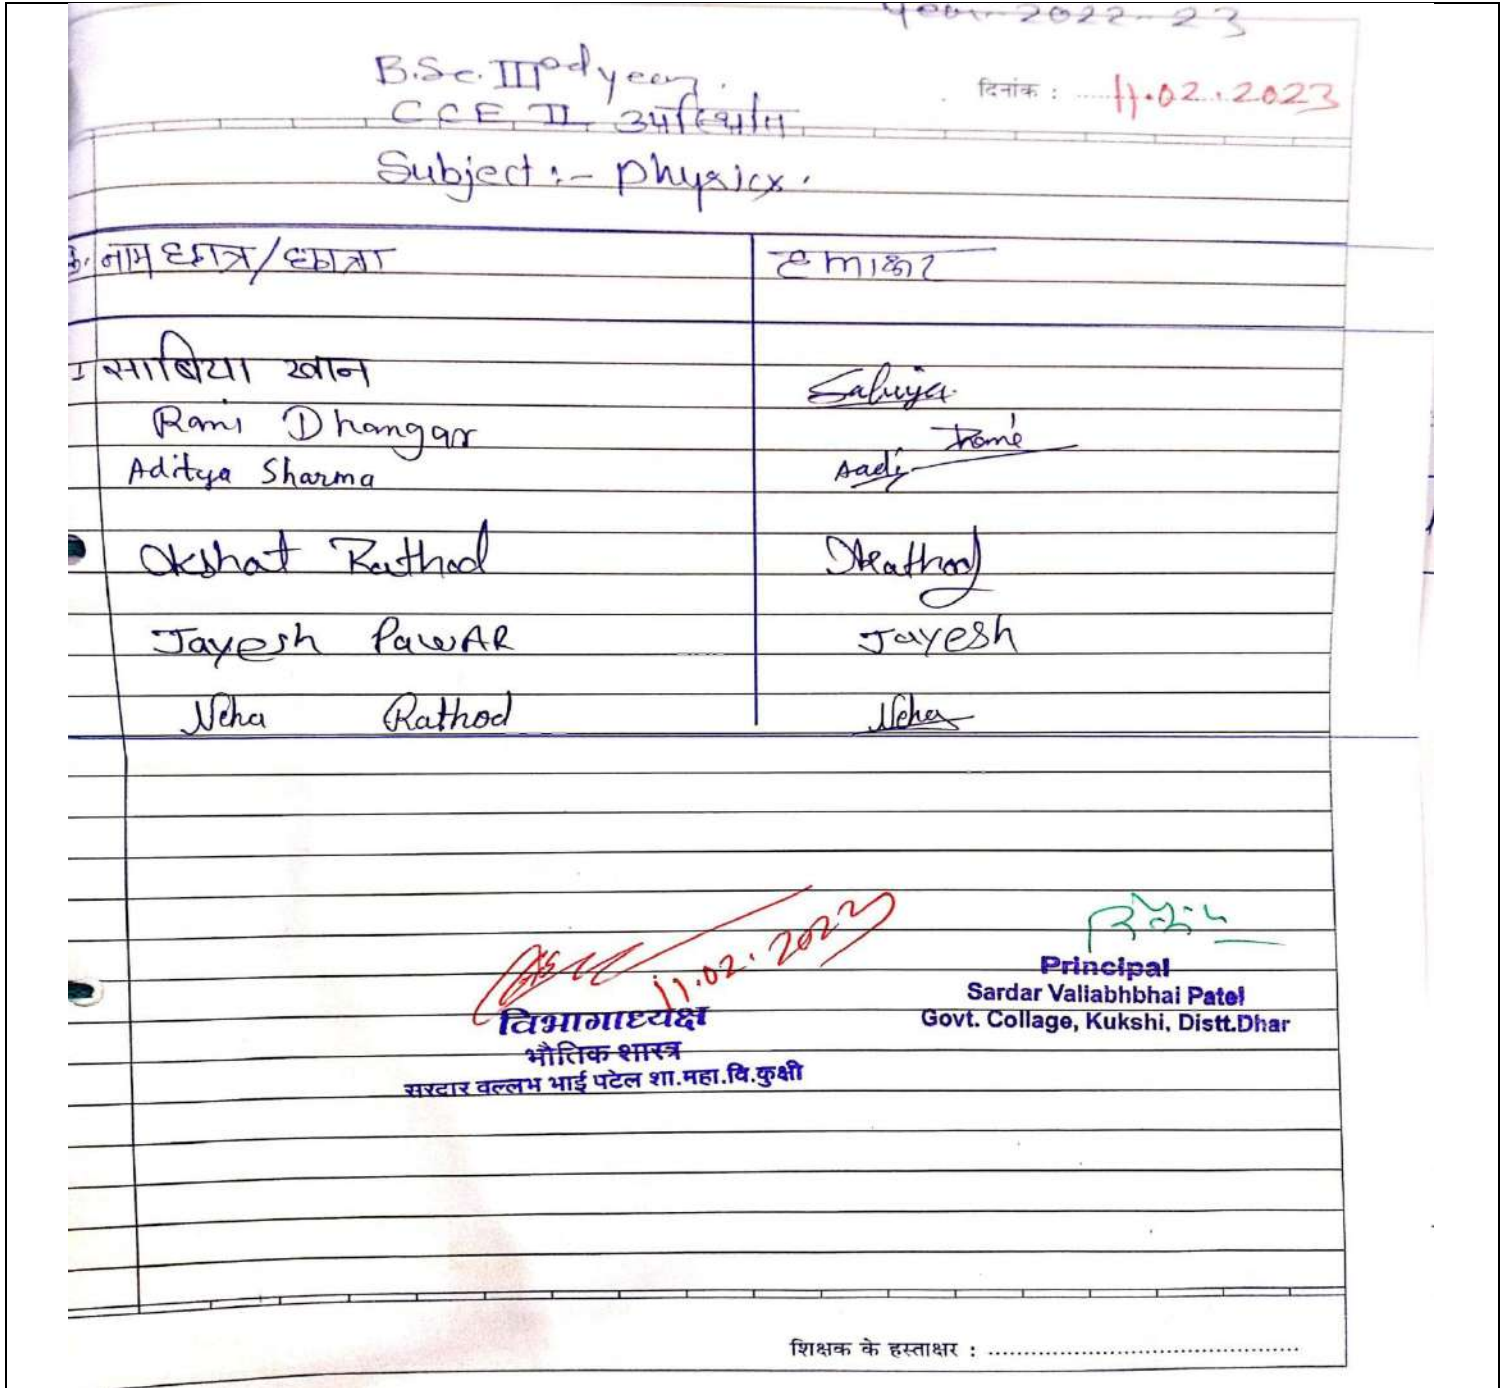 Year 2022-23
B.Sc. IIIrd year.
दिनांक : 11.02.2023
CCE II उपस्थिति
Subject :- Physics.
क्र. नाम छात्र/छात्रा हस्ताक्षर
1 साबिया खान Sabiya
Rani Dhangar Rani
Aditya Sharma Aadi
Akshat Rathod Rathod
Jayesh PawAR Jayesh
Neha Rathod Neha
11.02.2023
विभागाध्यक्ष
भौतिक शास्त्र
सरदार वल्लभ भाई पटेल शा.महा.वि.कुक्षी
Principal
Sardar Vallabhbhai Patel
Govt. Collage, Kukshi, Distt.Dhar
शिक्षक के हस्ताक्षर :